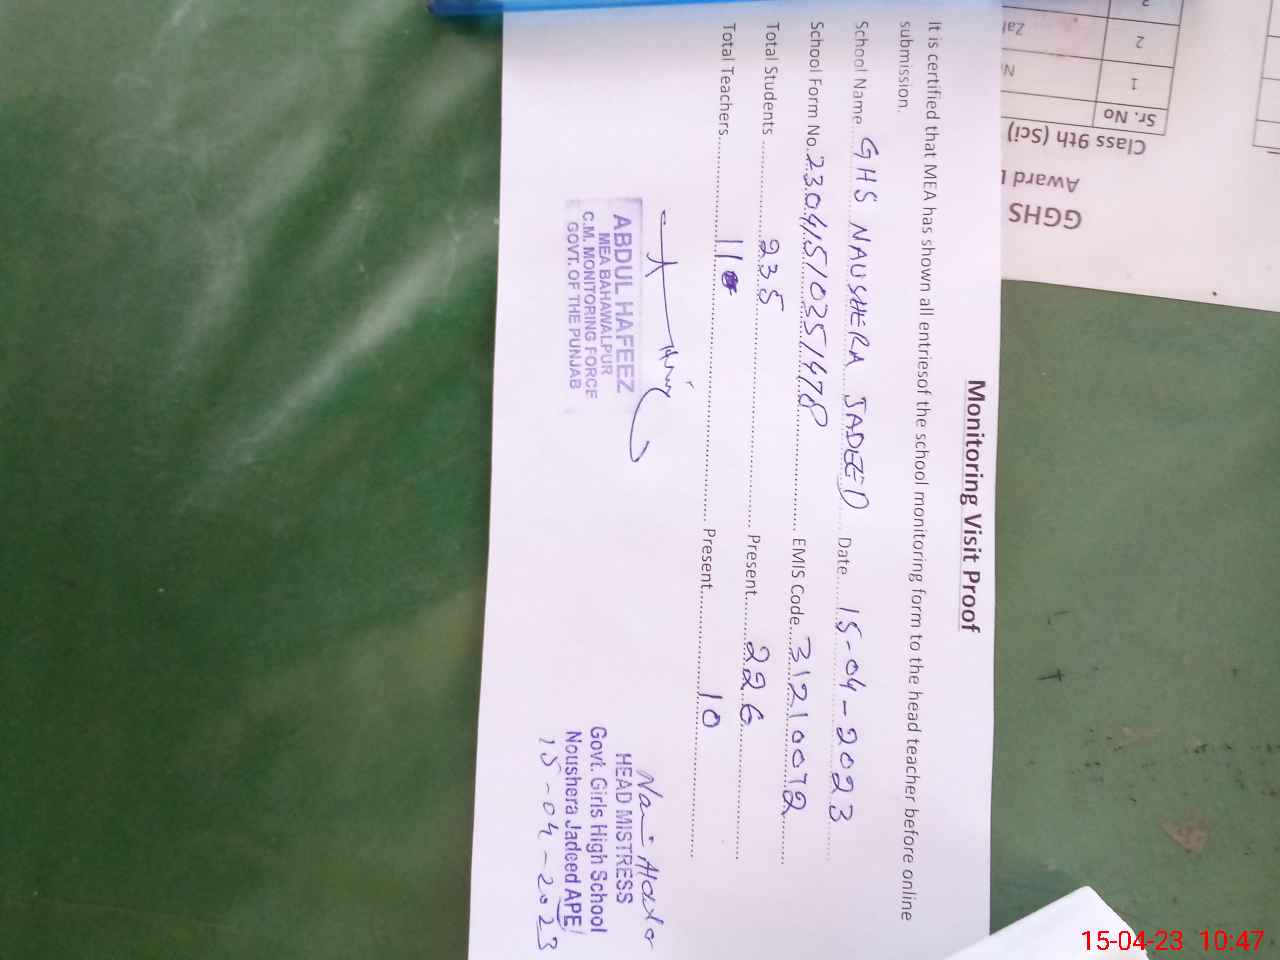 Monitoring Visit Proof
It is certified that MEA has shown all entriesof the school monitoring form to the head teacher before online
submission.
School Name GHS NAUSHERA JADEED Date 15-04-2023
School Form No. 23041510351478 EMIS Code 31210072
Total Students 235 Present 226
Total Teachers 11 Present 10
ABDUL HAFEEZ
MEA BAHAWALPUR
C.M. MONITORING FORCE
GOVT. OF THE PUNJAB
HEAD MISTRESS
Govt. Girls High School
Noushera Jadeed APE
15-04-2023
GGHS
Award
Class 9th (Sci)
Sr. No
1
2
15-04-23 10:47